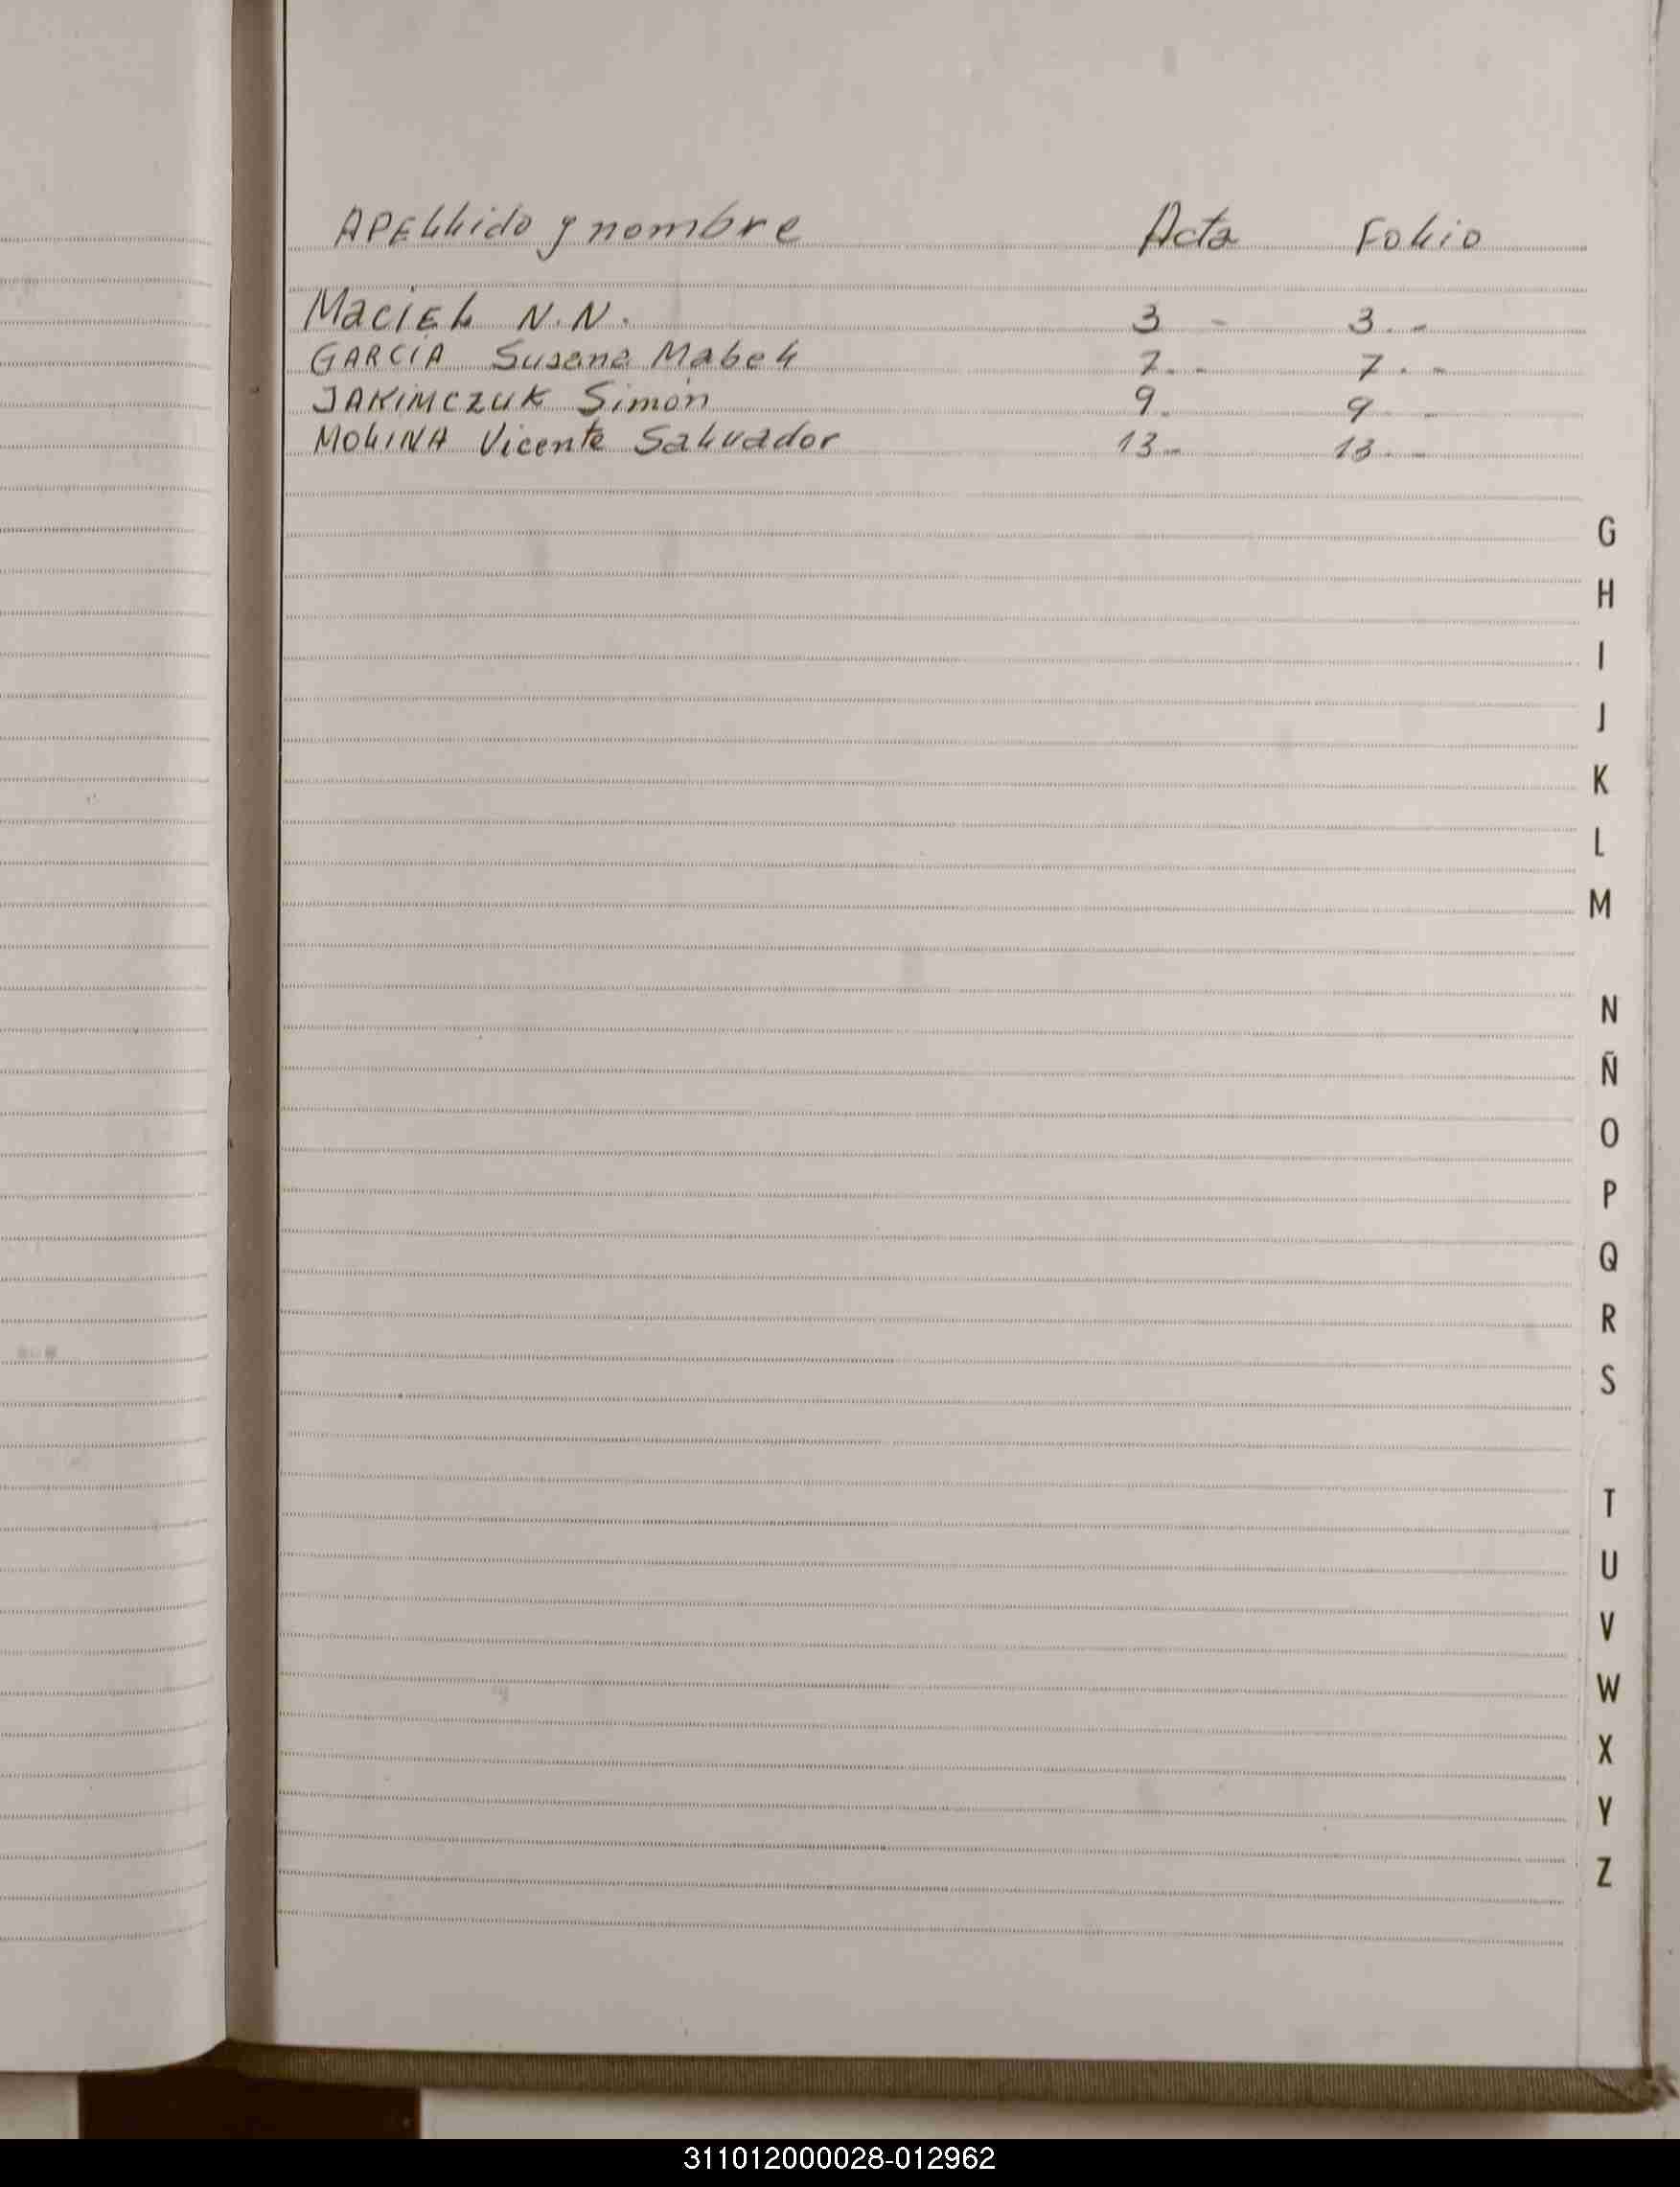 APELLido y nombre Acta Folio
MaciEL N.N. 3 - 3 . -
GARCIA Susana Mabel 7 . - 7 . -
JAKIMCZUK Simón 9 . 9 -
MOLINA Vicente Salvador 13 - 13 . -
G
H
I
J
K
L
M
N
Ñ
O
P
Q
R
S
T
U
V
W
X
Y
Z
311012000028-012962